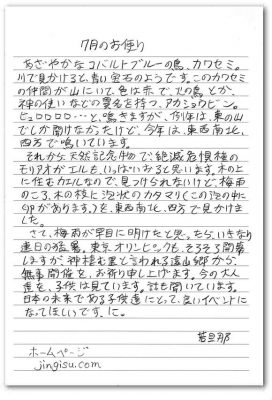 7月のお便り
あざやかなコバルトブルーの鳥、カワセミ。
川で見かけると、青い宝石のようです。このカワセミ
の仲間が山にいて、色は赤で、火の鳥とか、
神の使いなどの異名を持つ、アカショウビン。
ヒュロロロロ…と、鳴きますが、例年は、東の山
でしか聞けなかったけど、今年は、東西南北、
四方で鳴いています。
それから天然記念物で、絶滅危惧種の
モリアオガエルも、いっぱいおると思います。木の上
に住むカエルなので、見つけられないけど、梅雨
のころ、木の枝に泡状のカタマリ(この泡の中に
卵があります)を、東西南北、四方で見かけま
した。
さて、梅雨が早目に明けたと思ったら、いきなり
連日の猛暑。東京オリンピックも、そろそろ開幕
しますが、神様王国と言われる遠山郷から、
無事開催を、お祈り申し上げます。今の大人
達を、子供は見ています。話も聞いています。
日本の未来である子供達にとって、良いイベントに
なってほしいです、に。
若旦那
ホームページ
jingisu.com